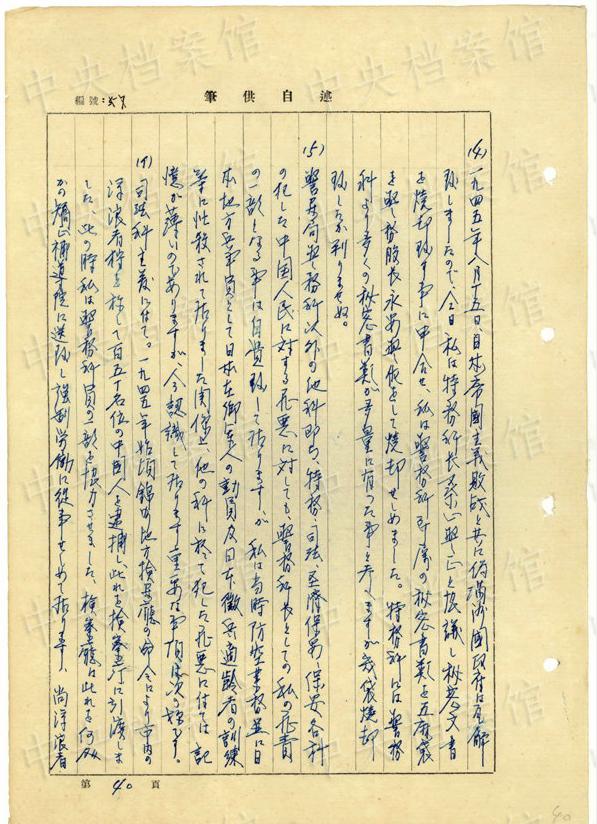 述自供筆
編號:
(4) 一九四五年八月十五日、日本帝國主義敗戦と共に偽満洲國政府は瓦解
致しましたので、今日私は特務科長 と協議し秘密文書
を焼却致す事に申合せ、私は警務科 の秘密書類を五麻袋
を警務股長 をして焼却せしめました。特務科には警務
科より多くの秘密書類が多量に有った事と考へますが幾袋焼却
致したか判りませぬ。
(5) 警察局警務科以外の他科即ち、特務、司法、経済保安、保安各科
の犯した中国人民に対する罪悪に対しても、警務科長としての私の罪責
の一部となる事は自覚致して居りますが、私は当時防空業務並に日
本地方兵事員として日本在郷軍人の動員及日本徴兵適齢者の訓練
等に忙殺されて居りました関係上他の科に於て犯した罪悪に付ては記
憶が薄いのでありますが今認識して居ります重要な事項は次の様です。
(イ) 司法科主義に付て。一九四五年始頃錦州地方検察廳の命令により市内の
浮浪者狩と称し百五十名位の中国人を逮捕し此れを検察庁に引渡しま
した。此の時私は警務科員の一部を協力させました。検察廳は此れを何処
かの矯正補導院に送致し強制労働に從事せしめて居ります、尚浮浪者
第 40 頁
40
中央档案馆